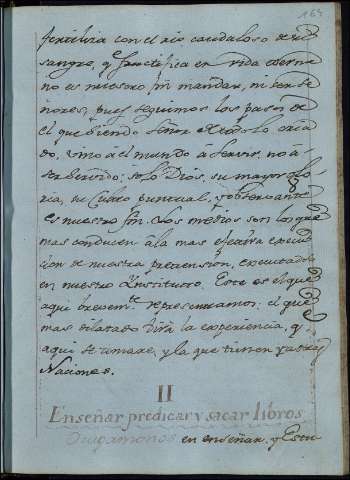 164
fertiliza con el rio caudaloso de su
sangre, qe fructifica en vida eterna
no es nuestro fin mandar, ni ser Se
ñores, pues seguimos los pasos de
el que siendo Señor de todo lo cria
do, vino á el mundo á servir, no á
ser servido: solo Dios, su mayor glo
ria, su Culto puntual, y
es nuestro fin. Los medios son los que
mas conducen á la mas efectiva execu
cion de nuestra pretension, executada
en nuestro Instituto. Este es el que
aqui brevemte representamos: el que
mas dilatado dirá la experiencia, q
aqui se tomare, y la que tienen ya otras
Naciones.
II
Enseñar predicar y sacar libros
Ocupamonos en enseñar. y Escri